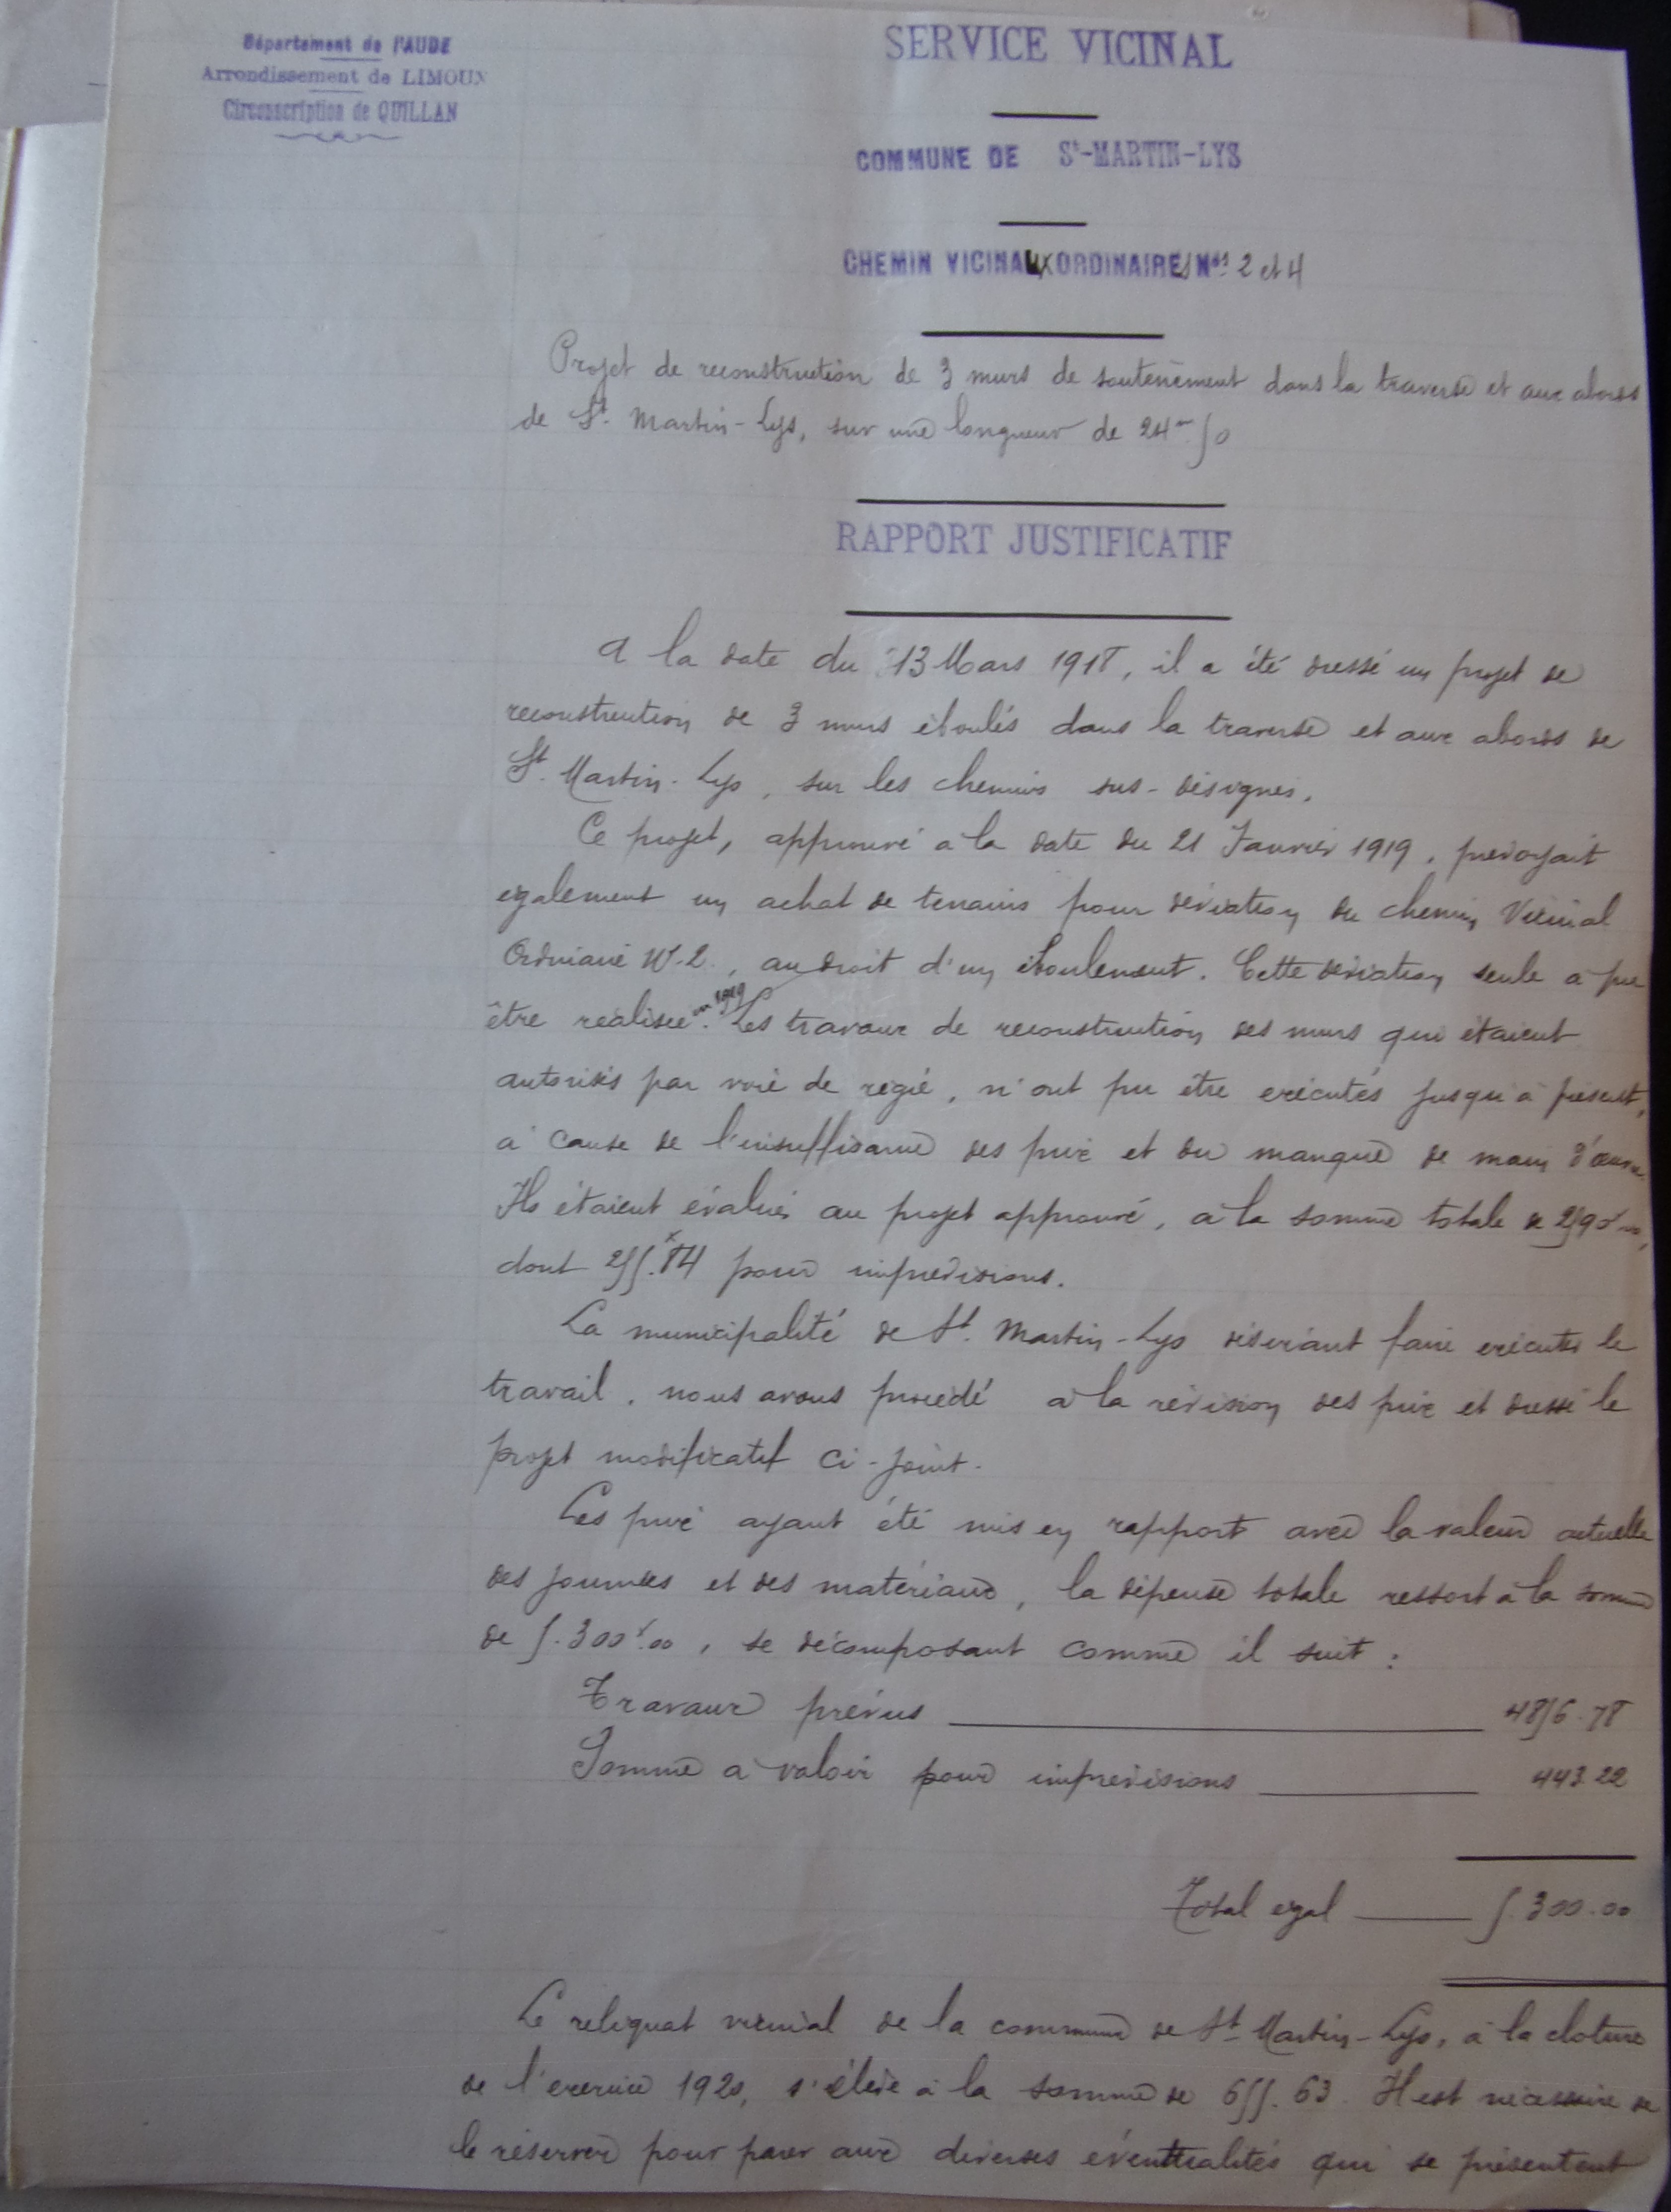 Département de l'AUDE
Arrondissement de LIMOUX
Circonscription de QUILLAN
SERVICE VICINAL
COMMUNE DE St-MARTIN-LYS
CHEMIN VICINAUX ORDINAIRES Nos 2 et 4
Projet de reconstruction de 3 murs de soutènement dans la traverse et aux abords
de St. Martin-Lys, sur une longueur de 24m.50
RAPPORT JUSTIFICATIF
A la date du 13 Mars 1918, il a été dressé un projet de
reconstruction de 3 murs éboulés dans la traverse et aux abords de
St. Martin-Lys, sur les chemins sus-désignés.
Ce projet, approuvé à la date du 21 Janvier 1919, prévoyait
egalement un achat de terrains pour déviation du chemin Vicinal
Ordinaire No 2, au droit d'un éboulement. Cette déviation seule a pu
être réalisée en 1919. Les travaux de reconstruction des murs qui étaient
autorisés par voie de régie, n'ont pu être exécutés jusqu'à présent,
à cause de l'insuffisance des prix et du manque de main d'œuvre
Ils étaient évalués au projet approuvé, à la somme totale de 2590f00,
dont 255f.84 pour imprévisions.
La municipalité de St. Martin-Lys désirant faire exécuter le
travail, nous avons procédé à la révision des prix et dressé le
projet modificatif ci-joint.
Les prix ayant été mis en rapport avec la valeur actuelle
des journées et des matériaux, la dépense totale ressort à la somme
de 5.300f.00, se décomposant comme il suit :
Travaux prévus 4856.78
Somme à valoir pour imprévisions 443.22
Total egal 5.300.00
Le reliquat vicinal de la commune de St-Martin-Lys, à la cloture
de l'exercice 1920, s'élève à la somme de 655.63. Il est nécessaire de
le réserver pour parer aux diverses éventualités qui se présentent